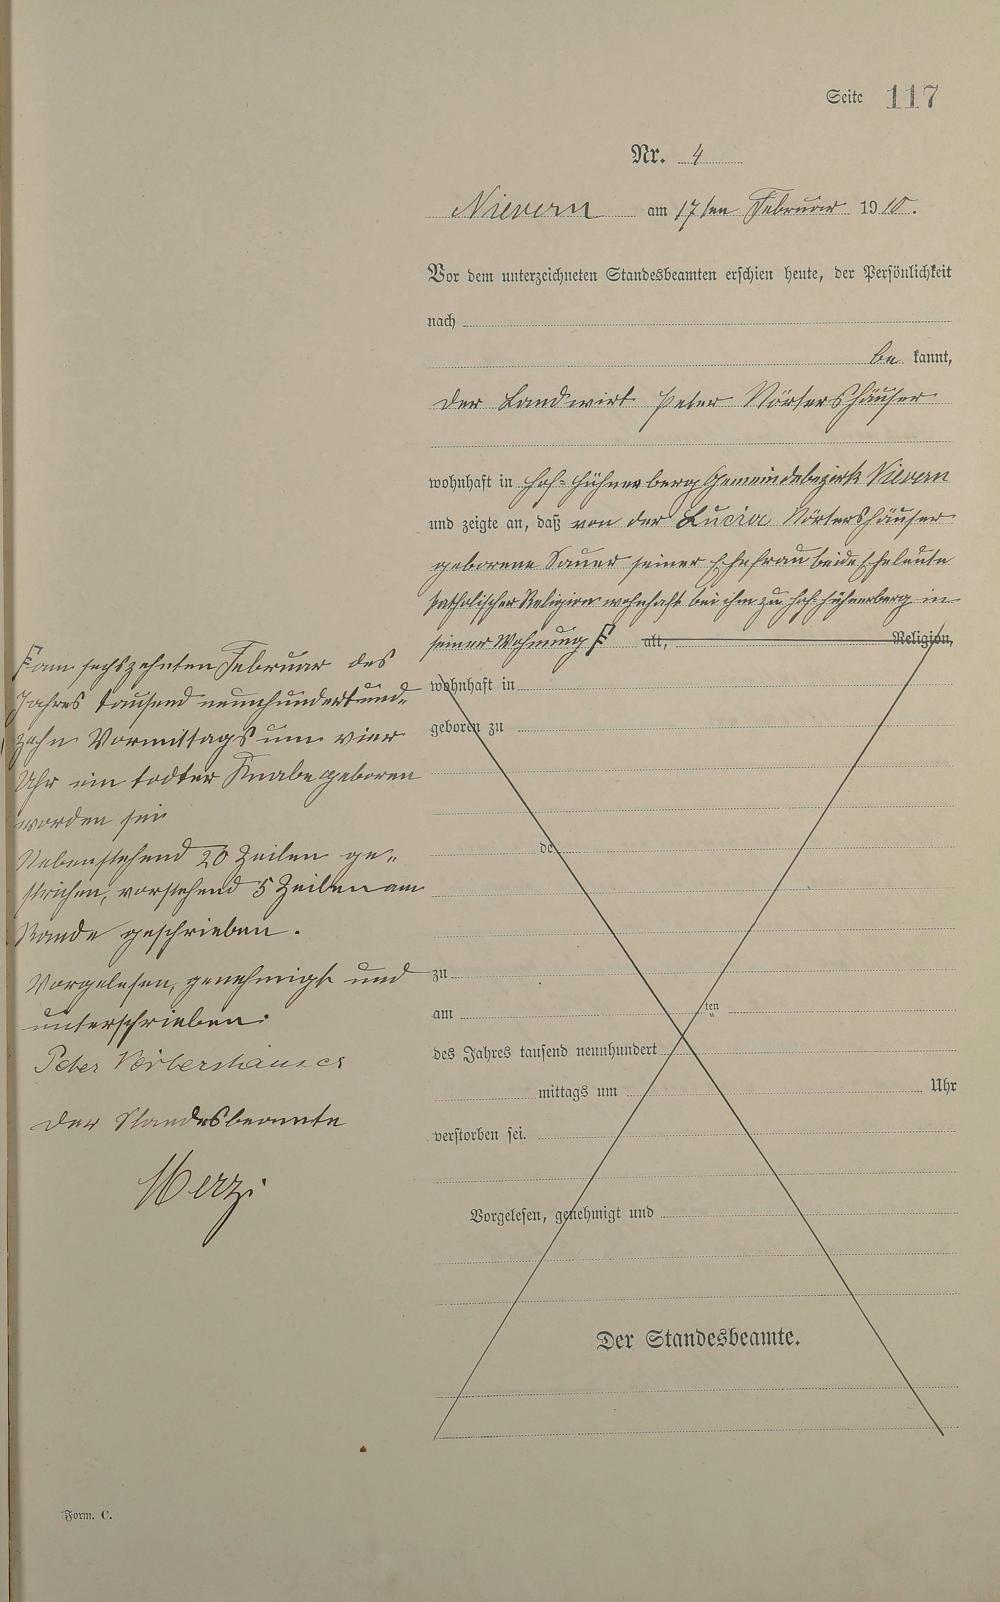 Seite 117
Nr. 4
Nievern am 17ten Februar 1910.
Vor dem unterzeichneten Standesbeamten erschien heute, der Persönlichkeit
nach
be kannt,
der Landwirt Peter Nörtershäuser
wohnhaft in Hof-Hühnerberg Gemeindebezirk Nievern
und zeigte an, daß von der Lucia Nörtershäuser
geborene Sauer seiner Ehefrau beide Eheleute
katholischer Religion wohnhaft bei ihm zu Hof-Hühnerberg in
seiner Wohnung F alt, Religion,
wohnhaft in
geboren zu
de
zu
am ten
des Jahres tausend neunhundert
mittags um Uhr
verstorben sei.
Vorgelesen, genehmigt und
Der Standesbeamte.
F am sechszehnten Februar des
Jahres tausend neunhundertund„
zehn Vormittags um vier
Uhr ein todter Knabe geboren
worden sei
Nebenstehend 20 Zeilen ge„
strichen, vorstehend 5 Zeilen am
Rande geschrieben.
Vorgelesen, genehmigt und
unterschrieben:
Peter Nörtershäuser
Der Standesbeamte
Merz
Form. C.